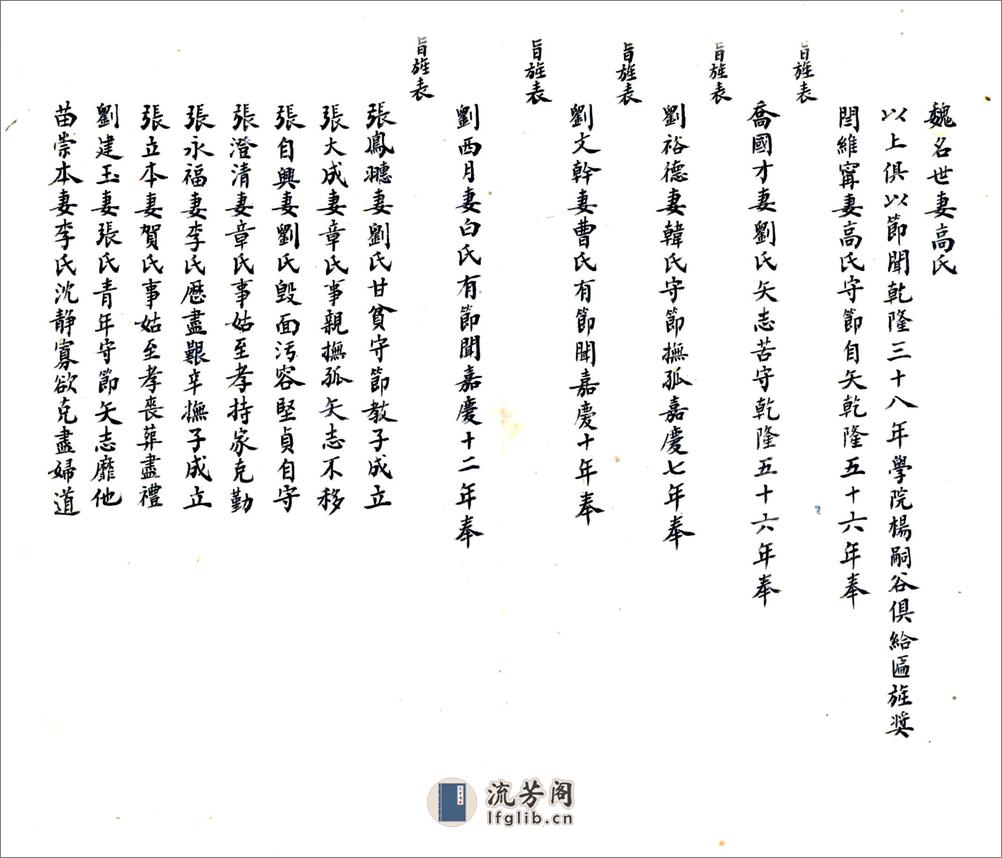 魏名世妻高氏
以上俱以節聞乾隆三十八年學院楊嗣谷俱給匾旌奬
閆維寗妻高氏守節自矢乾隆五十六年奉
旨旌表
喬國才妻劉氏矢志苦守乾隆五十六年奉
旨旌表
劉裕德妻韓氏守節撫孤嘉慶七年奉
旨旌表
劉文幹妻曹氏有節聞嘉慶十年奉
旨旌表
劉西月妻白氏有節聞嘉慶十二年奉
旨旌表
張鳳妻劉氏甘貧守節教子成立
張大成妻章氏事親撫孤矢志不移
張自興妻劉氏毀面汚容堅貞自守
張澄清妻章氏事姑至孝持家克勤
張永福妻李氏歷盡艱辛撫子成立
張立本妻賀氏事姑至孝喪葬盡禮
劉建玉妻張氏青年守節矢志靡他
苗崇本妻李氏沈靜寡欲克盡婦道
流芳阁
lfglib.cn